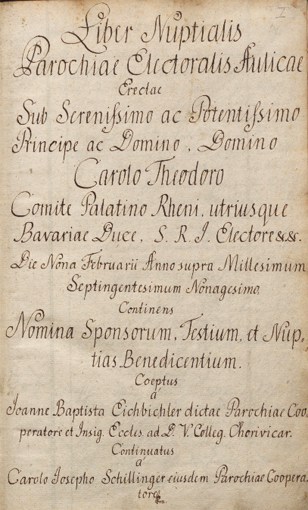 I
Liber Nuptialis
Parochiae Electoralis Aulicae
Erectae
Sub Serenissimo ac Potentissimo
Principe ac Domino, Domino
Carolo Theodoro
Comite Palatino Rheni, utriusque
Bavariae Duce, S. R. I. Electore &c &c.
Die Nona Februarii Anno supra Millesimum
Septingentesimum Nonagesimo
Continens
Nomina Sponsorum, Testium, et Nup,
tias Benedicentium.
Coeptus
á
Joanne Baptista Eichbichler dictae Parochiae Coo,
peratore et Insig. Eccles. ad. B. V. Colleg. Chorivicar.
Continuatus
á
Carolo Josepho Schillinger eiusdem Parochiae Coopera,
tore